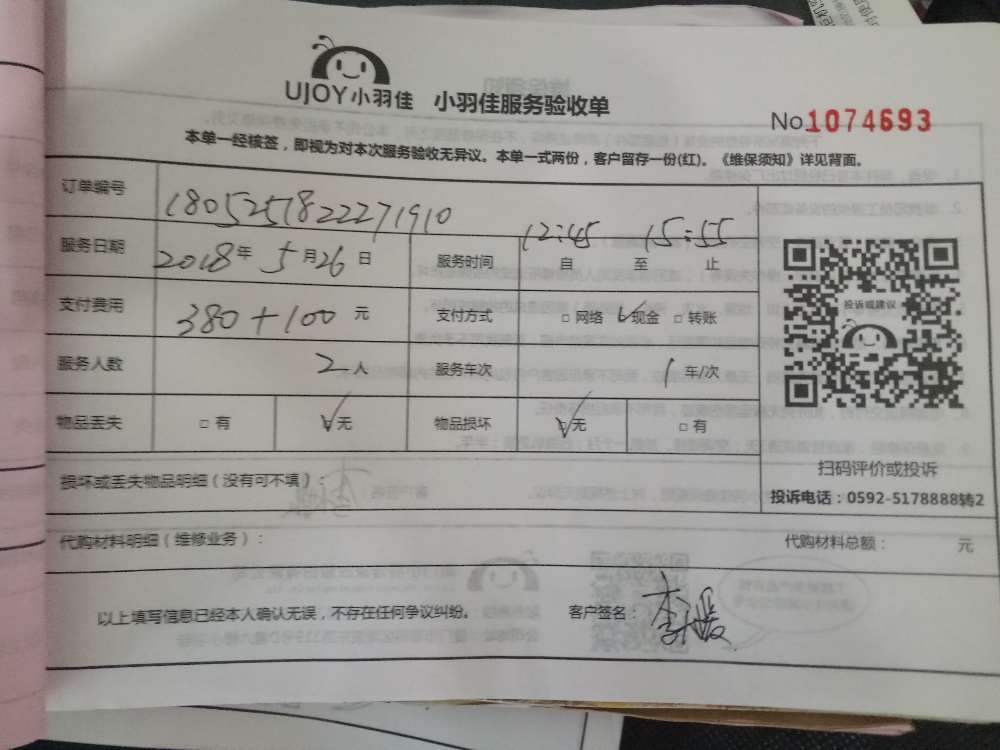 UJOY小羽佳 小羽佳服务验收单
No.1074693
本单一经核签，即视为对本次服务验收无异议。本单一式两份，客户留存一份(红)。《维保须知》详见背面。
订单编号 1805251822271910
服务日期 2018年5月26日 服务时间 12:45 自 至 15:55 止
支付费用 380+100 元 支付方式 □网络 ☑现金 □转账
服务人数 2人 服务车次 1车/次
物品丢失 □有 ☑无 物品损坏 ☑无 □有
投诉或建议
扫码评价或投诉
投诉电话：0592-5178888转2
损坏或丢失物品明细（没有可不填）：
代购材料明细（维修业务）： 代购材料总额： 元
以上填写信息已经本人确认无误，不存在任何争议纠纷。 客户签名：李